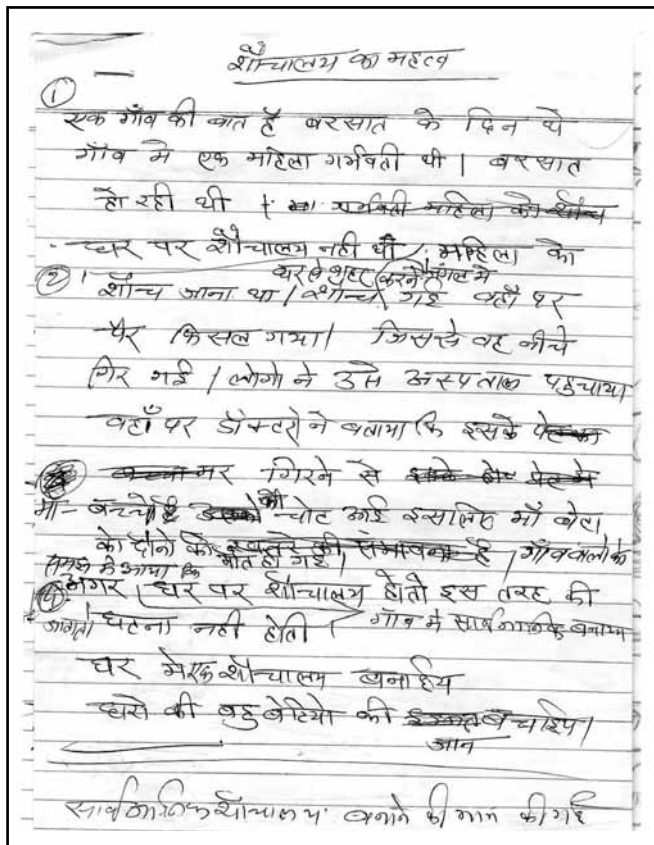 शौचालय का महत्व
①
एक गाँव की बात है बरसात के दिन थे
गाँव मे एक महिला गर्भवती थी । बरसात
हो रही थी ।
घर पर शौचालय नही थी महिला को
② घर से बाहर करने जंगल मे
शौच जाना था । शौच गई वहाँ पर
पैर फिसल गया। जिससे वह नीचे
गिर गई । लोगो ने उसे अस्पताल पहुचाया
वहाँ पर डॉक्टरो ने बताया कि इसके
गिरने से
माँ - बच्चे को चोट आई इसलिए माँ बेटा
के दोनो की मौत हो गई । गाँव वालो के
समझ मे आया कि
④ अगर घर पर शौचालय होतो इस तरह की
घटना नही होती । गाँव मे सार्वजनिक बनाया
घर मे एक शौचालय बनाईये
की बहु बेटियो की जान बचाइए।
सार्वजनिक शौचालय बनाने की माग की गई